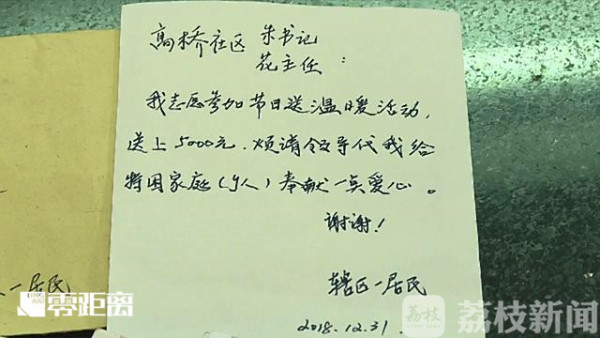 高桥社区 朱书记
花主任：
我志愿参加节日送温暖活动，
送上5000元．烦请领导代我给
特困家庭（5人）奉献一点爱心。
谢谢！
辖区一居民
2018.12.31.
一居民
零距离
荔枝
荔枝新闻